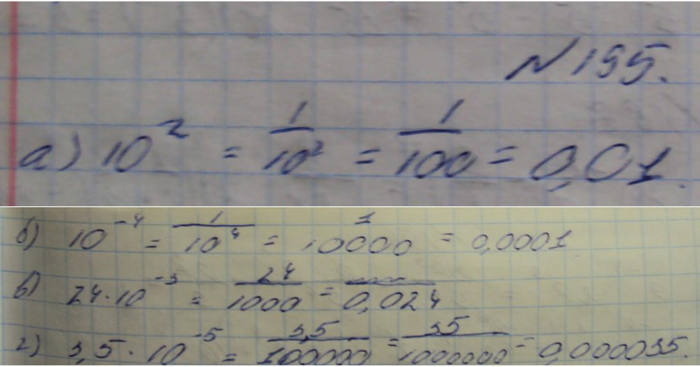 № 195.
а) 10² = 1/10² = 1/100 = 0,01.
б) 10⁻⁴ = 1/10⁴ = 1/10000 = 0,0001
в) 24·10⁻³ = 24/1000 = 0,024
г) 3,5·10⁻⁵ = 3,5/100000 = 35/1000000 = 0,000035.